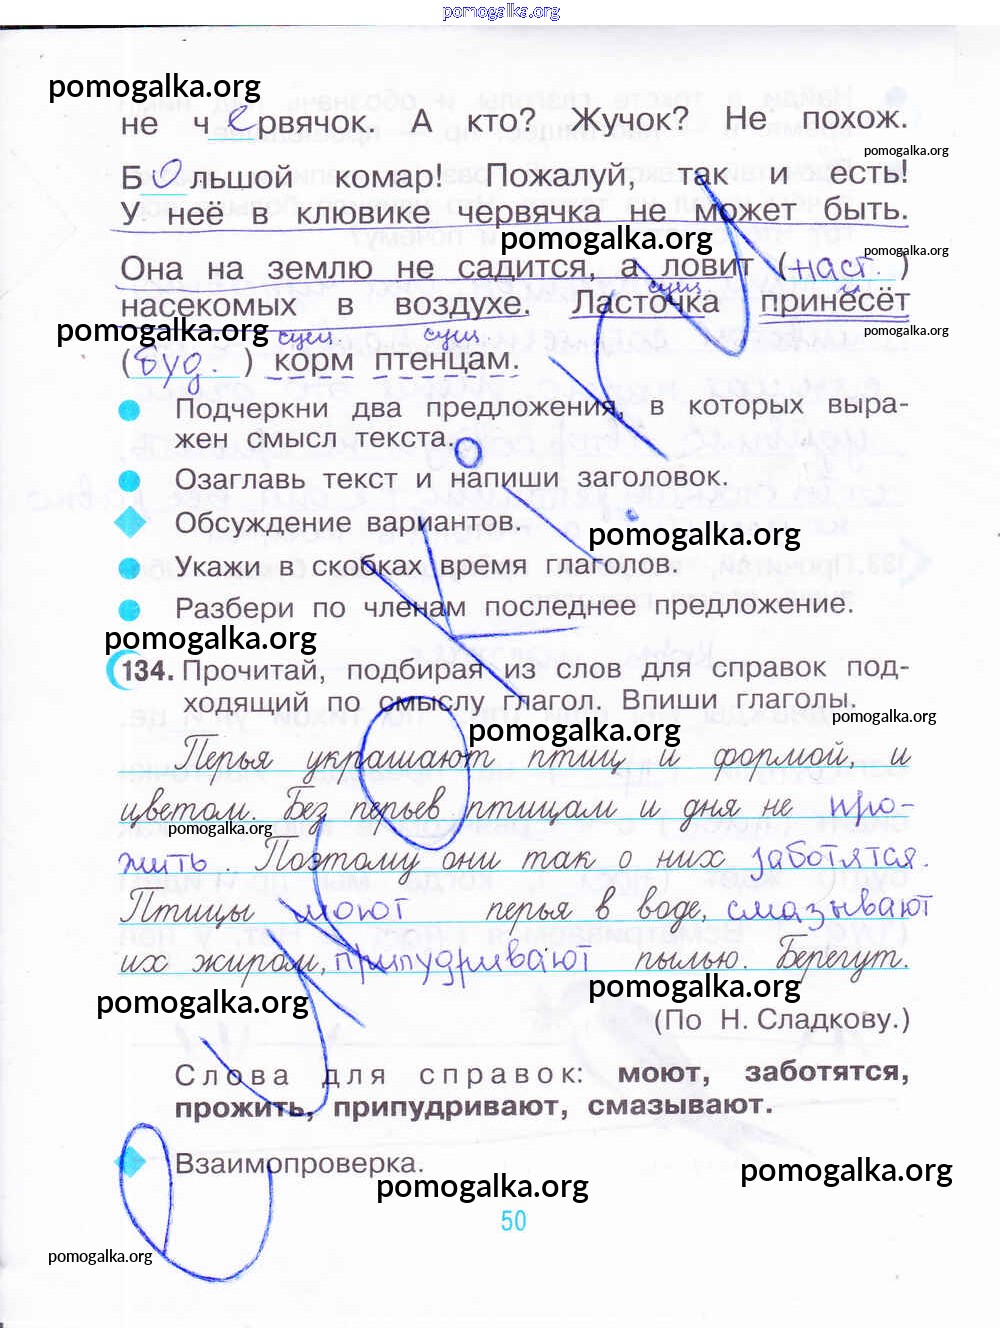 pomogalka.org
pomogalka.org
не червячок. А кто? Жучок? Не похож.
pomogalka.org
Большой комар! Пожалуй, так и есть!
У неё в клювике червячка не может быть.
pomogalka.org
pomogalka.org
Она на землю не садится, а ловит (наст.)
сущ
насекомых в воздухе. Ласточка принесёт
pomogalka.org
pomogalka.org
сущ сущ
(буд.) корм птенцам.
Подчеркни два предложения, в которых выра-
жен смысл текста.
Озаглавь текст и напиши заголовок.
Обсуждение вариантов.
pomogalka.org
Укажи в скобках время глаголов.
Разбери по членам последнее предложение.
pomogalka.org
134. Прочитай, подбирая из слов для справок под-
ходящий по смыслу глагол. Впиши глаголы.
pomogalka.org
pomogalka.org
Перья украшают птиц и формой, и
цветом. Без перьев птицам и дня не про-
pomogalka.org
жить. Поэтому они так о них заботятся.
Птицы моют перья в воде, смазывают
их жиром, припудривают пылью. Берегут.
pomogalka.org
pomogalka.org
(По Н. Сладкову.)
Слова для справок: моют, заботятся,
прожить, припудривают, смазывают.
Взаимопроверка.
pomogalka.org
pomogalka.org
50
pomogalka.org